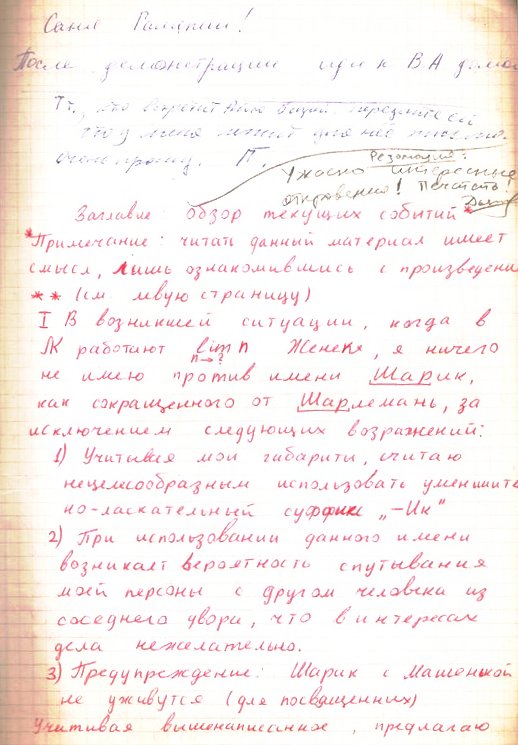 Саня Галяпин!
После демонстрации иди к В А домой
Тт, кто встретит Аню
что у меня может для неё
очень прошу. П.
Резолюция:
Ужасно интересные
откровения! Печатать!
Заглавле: Обзор текущих событий*
*Примечание: читать данный материал имеет
смысл, лишь ознакомившись с произведени
** (см. левую страницу)
I В возникшей ситуации, когда в
ЛК работают lim n Женек, я ничего
n→?
не имею против имени Шарик,
как сокращенного от Шарлемань, за
исключением следующих возражений:
1) Учитывая мои габариты, считаю
нецелесообразным использовать уменшите
но-ласкательный суффикс „-Ик"
2) При использовании данного имени
возникает вероятность спутывания
моей персоны с другом человека из
соседнего двора, что в интересах
дела нежелательно.
3) Предупреждение: Шарик с Машенькой
не уживутся (для посвященных)
Учитывая вышенаписанное, предлагаю